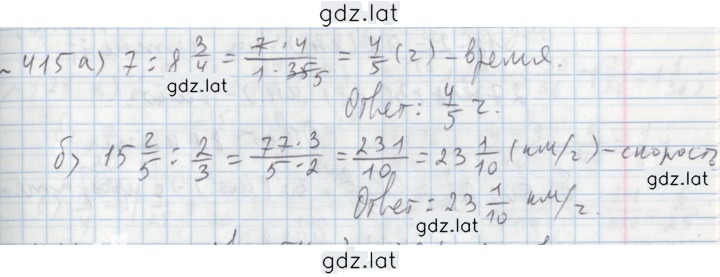 gdz.lat
№ 415 а) 7 : 8 3/4 = 7·4/1·35 5 = 4/5 (ч) – время.
gdz.lat
Ответ: 4/5 ч.
б) 15 2/5 : 2/3 = 77·3/5·2 = 231/10 = 23 1/10 (км/ч) – скорость
gdz.lat
Ответ: 23 1/10 км/ч.
gdz.lat